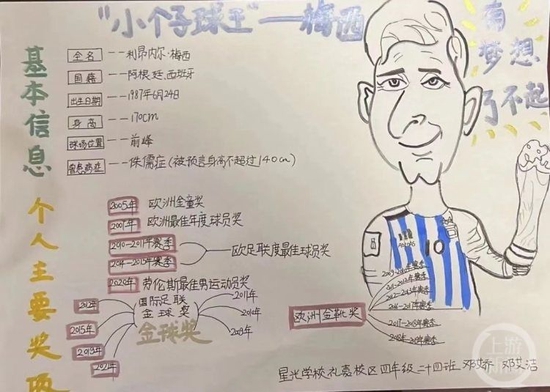 "小个子球王"——梅西
有
梦想
了不起
基本信息
全名 --利昂内尔·梅西
国籍 --阿根廷、西班牙
出生日期 --1987年6月24日
身高 --170cm
球场位置 --前峰
--侏儒症(被预言身高不超过140cm)
个人主要奖项
2005年 欧洲金童奖
欧洲最佳年度球员奖
2010-2011年赛季
2014-2015年赛季
欧足联度最佳球员奖
2020年 劳伦斯最佳男运动员奖
国际足联
金球奖
金球奖
2015年
2019年
2011年
欧洲金靴奖
2009-2010年赛季
2012-2013年赛季
2016-2017年赛季
2017-2018年赛季
2018-2019年赛季
10
星光学校礼嘉校区四年级二十四班 邓
上游